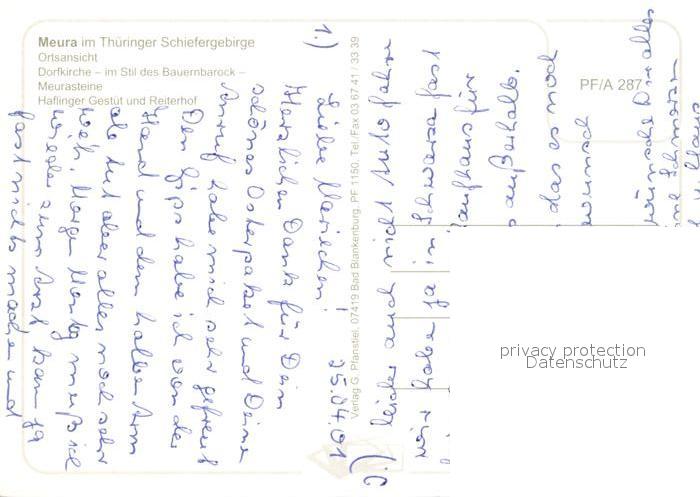 Meura im Thüringer Schiefergebirge
Ortsansicht
Dorfkirche – im Stil des Bauernbarock –
Meurasteine
Haflinger Gestüt und Reiterhof
PF/A 287
Verlag G. Pfanstiel, 07419 Bad Blankenburg, PF 1150, Tel./Fax 03 67 41 / 33 39
1.) 25.04.01
Liebe
Herzlichen Dank für Dein
schönes Osterpaket und Deine
Anruf habe mich sehr gefreut
Den Gips habe ich von der
Hand und dem halben Arm
ab tut aber alles noch sehr
weh. Morgen Montag muß ich
wieder zum Arzt kann ja
fast nichts machen und
leider auch nicht Auto fahren
wir haben ja in Schwarza fast
kaufhaus für
außerhalb.
das es noch
wünsche Dir alles
privacy protection
Datenschutz